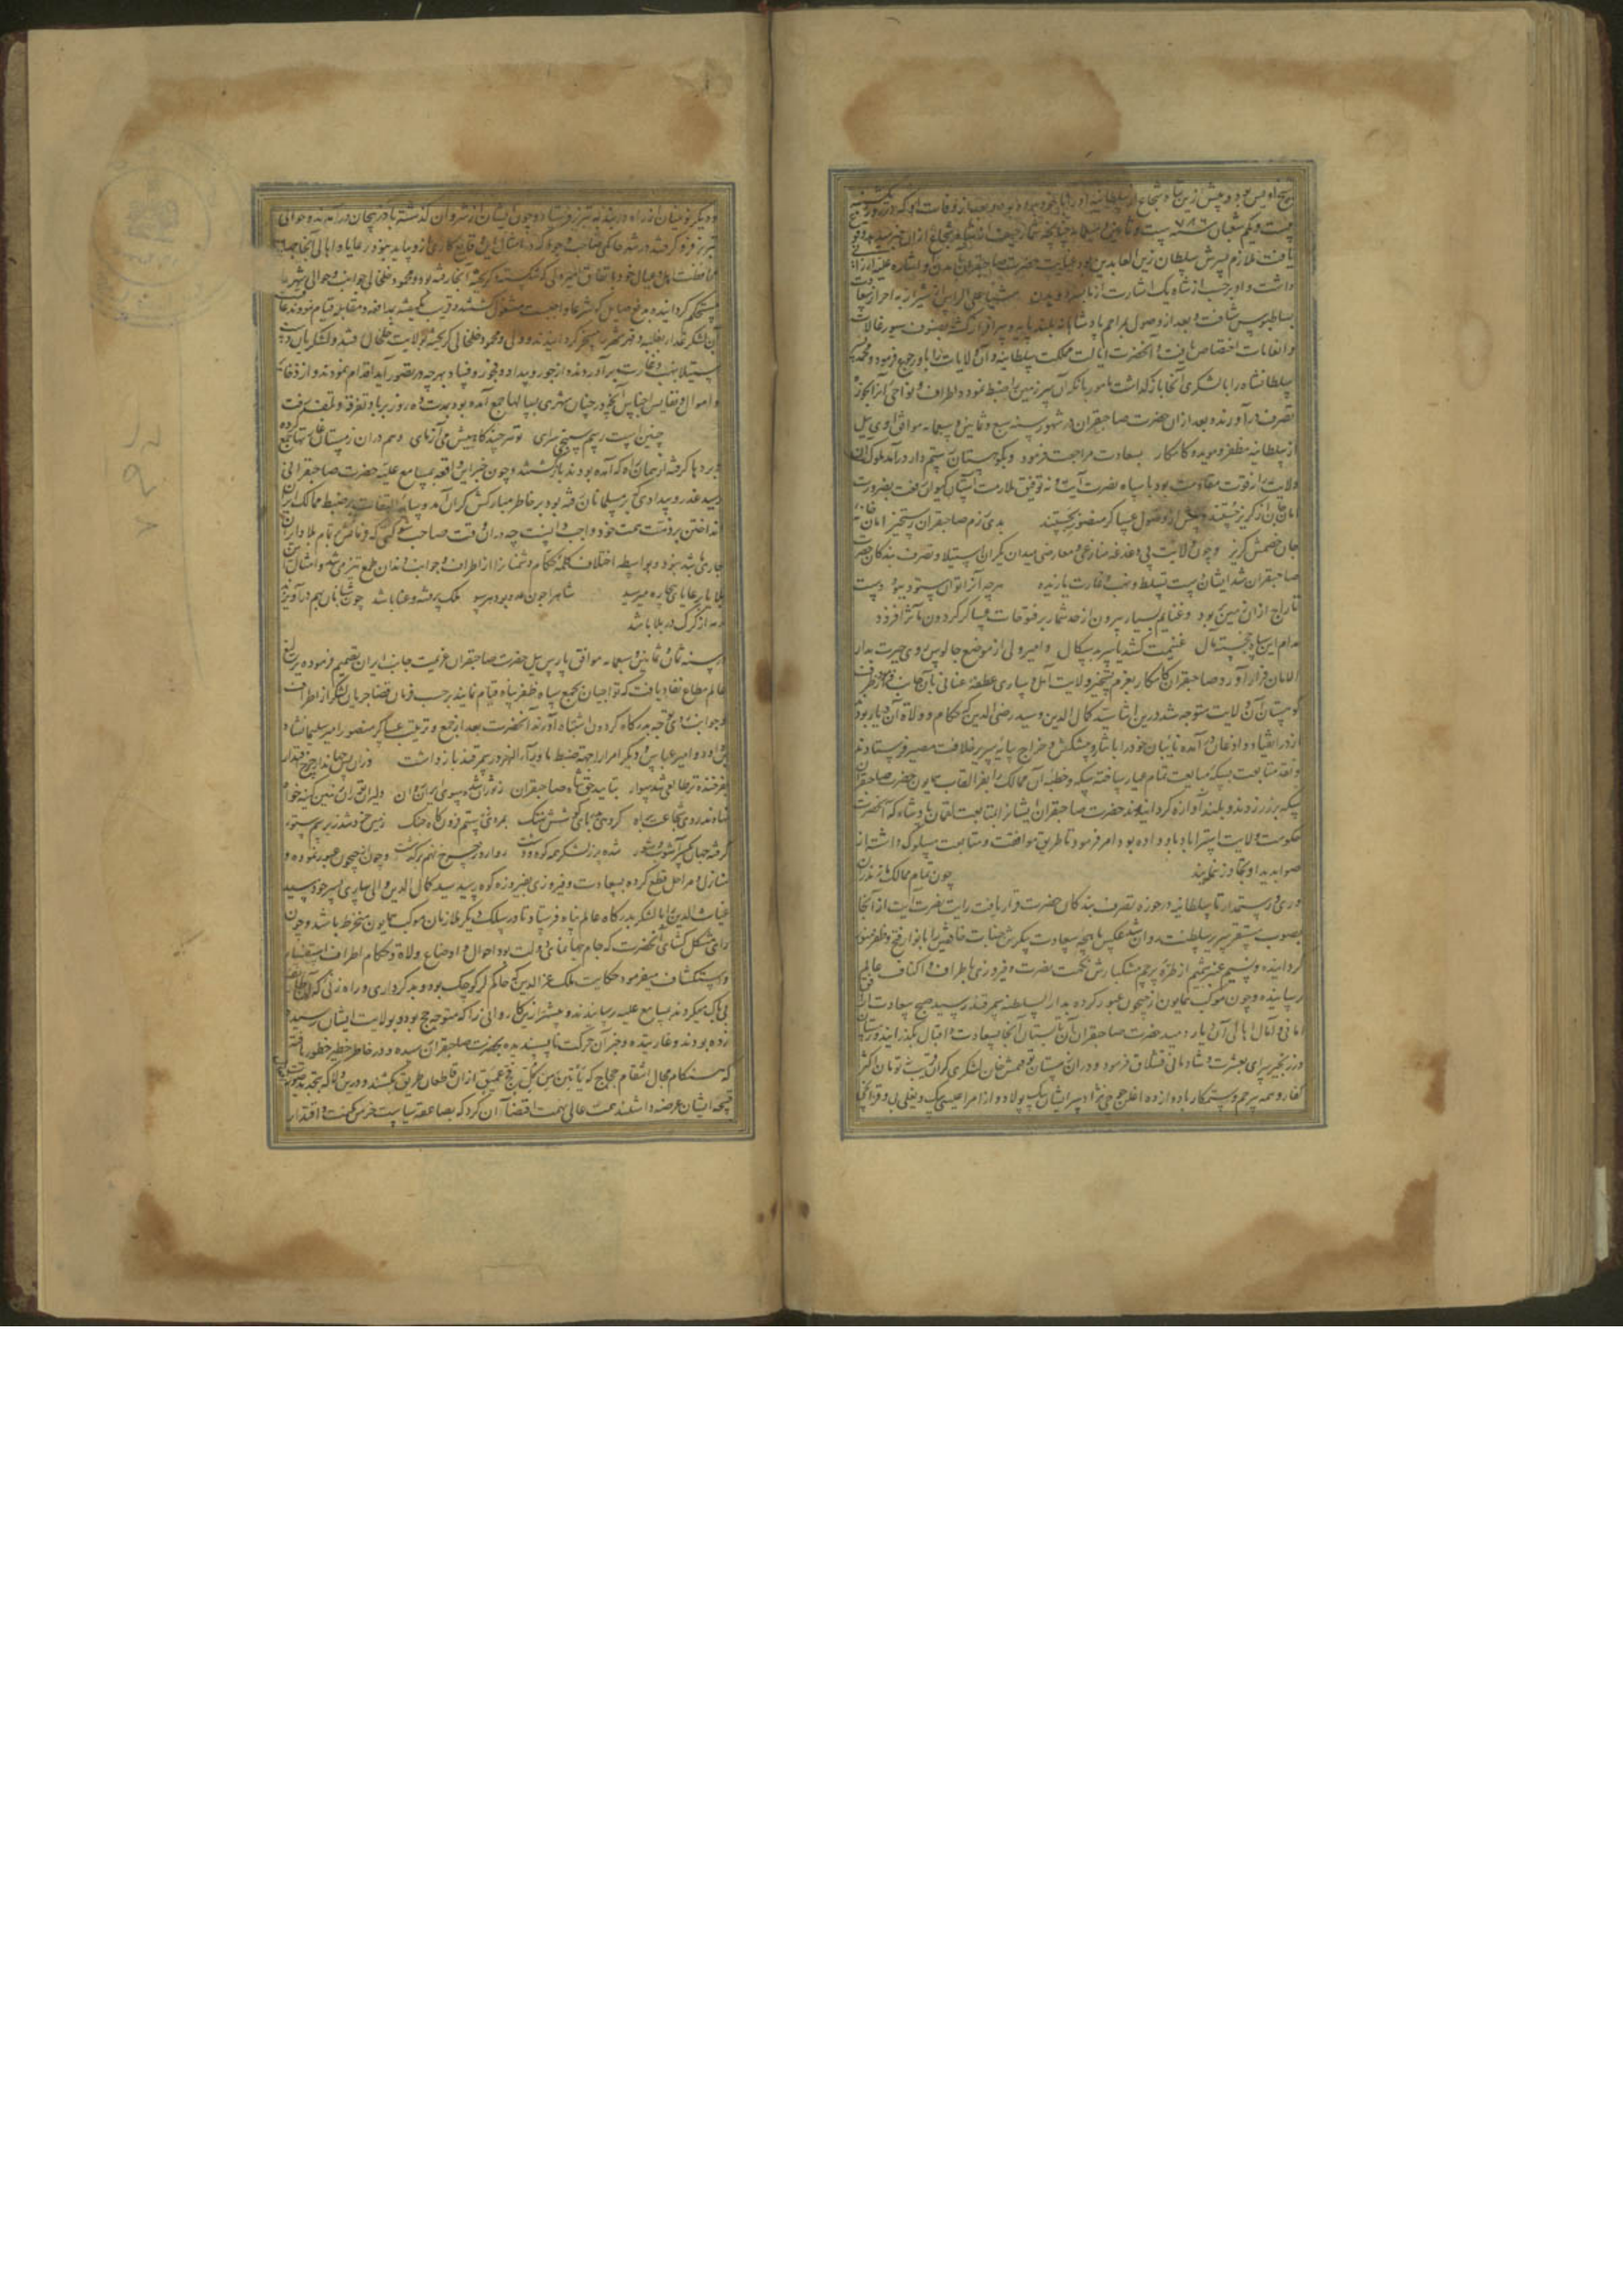 شیخ اویس بود و پیش ازین شاه شجاع از سلطانیه او را با خود برده بود و بعد از وفات او که در روز یکشنبه
بیست و یکم شعبان سنه ۷۸۶ ست و ثمانین و سبعمایه
یافت ملازم پسرش سلطان زین العابدین بود عنایت حضرت صاحبقران
داشت و او بر حسب اشارت از شیراز به احراز سعادت
بساط بوس شتافت و بعد از وصول بمراحم پادشاهانه بلند پایه و سرافراز گشته بصنوف سیورغالات
و انعامات اختصاص یافت و آنحضرت ایالت مملکت سلطانیه و آن ولایات را باو رجوع فرمود و محمد
سلطانشاه را با لشکری آنجا بازگذاشت مامور بانکه آن سرزمین را ضبط نموده و اطراف و نواحی آنرا بحوزه
تصرف درآورند و بعد از ان حضرت صاحبقران در شهور سنه سبع و ثمانین و سبعمایه موافق اوی ییل
از سلطانیه مظفر و موید و کامکار بسعادت مراجعت فرمود و بکوهستان رستمدار درآمد ملوک آن
ولایت را قوت مقاومت نبود با سپاه نصرت آیت و نه توفیق ملازمت آستان کیوان رفعت بضرورت
امان جان از گریز جستند و پیش از وصول عساکر منصور بجستند بدی رزم صاحبقران رستخیز امان
جان خصمش گریز و چون ولایت بی دغدغه منازعی و معارضی میدان یکران استیلا و تصرف بندگان حضرت
صاحبقران شد ایشان دست تسلط و نهب و غارت یازیده هر چه آنرا توان ستود ببود دست
تاراج ازان زمین بربود و غنایم بسیار بیرون از حد شمار بر فتوحات عساکر گردون مآثر افزود
مدام این سپاه خجسته مآل غنیمت کشد یا سر بدسگال و امیر ولی از موضع چالوس روی حیرت بدار
الامان فرار آورد و صاحبقران کامکار بعزم تسخیر ولایت آمل و ساری عطفه عنانی بآن جانب فرمود از طرف
کوهستان آن ولایت متوجه شد درین اثنا سید کمال الدین و سید رضی الدین که حکام و ولاة آن دیار بودند
از در انقیاد و اذعان درآمده نایبان خود را با نثار و پیشکش و خراج بپایه سریر خلافت مصیر فرستادند
و نقد متابعت بسکه مبایعت تمام عیار ساخته سکه و خطبه آن ممالک را بفر القاب همایون حضرت صاحبقران
سکه بر زر زدند و بلند آوازه گردانیدند حضرت صاحبقران ایشانرا بمتابعت لقمان پادشاه که آنحضرت
حکومت ولایت استراباد باو داده بود امر فرمود تا طریق موافقت و متابعت مسلوک داشته از
صوابدید او تجاوز ننمایند چون تمام ممالک مازندران
و ری و رستمدار تا سلطانیه در حوزه تصرف بندگان حضرت قرار یافت رایت نصرت آیت از آنجا
بصوب مستقر سریر سلطنت روان شد عکس ماهچه سعادت پیکرش جنبات خافقین را بانوار فتح و ظفر منور
گردانیده و نسیم عنبر شمیم از طره پرچم مشکبارش نکهت نصرت و فیروزی باطراف و اکناف عالم
رسانیده و چون موکب همایون از جیحون عبور کرده بدار السلطنه سمرقند رسید صبح سعادت از افق
امانی و آمال اهالی آن دیار دمید حضرت صاحبقران آن تابستان آنجا بسعادت و اقبال بگذرانید و زمستان
در زنجیرسرای بعشرت و شادمانی قشلاق فرمود و در آن زمستان توقتمش خان لشکری گران قریب نه تومان اکثر
کفار و همه بی رحم و ستمکار با دوازده اغلن جوجی نژاد سر ایشان بیک پولاد و از امرا عیسی بیک و یغلی بی و قزانچی
و دیگر نوئینان از راه دربند به تبریز فرستاد و چون ایشان از شروان گذشته باذربیجان درآمدند و حوالی
تبریز فرو گرفتند در شهر حاکمی صاحب وجود که در امثال این وقایع کاری ازو بیاید نبود رعایا و اهالی آنجا جهت
محافظت اهل و عیال خود باتفاق امیر ولی که شکسته و گریخته آنجا رفته بود و محمود خلخالی جوانب و حوالی شهر را
مستحکم گردانیده بدفع صایل که شرعا واجبست مشغول گشتند و قریب یکهفته بمدافعه و مقابله قیام نمودند عاقبت
آن لشکر غدار بغلبه و قهر شهر را مسخر گردانیدند و ولی و محمود خلخالی گریخته بولایت خلخال رفتند و لشکریان دست
استیلا بنهب و غارت برآوردند و از جور و بیداد و فجور و فساد هر چه در تصور آید اقدام نمودند و از ذخایر
و اموال و نفایس اجناس آنچه در چنان شهری بسالها جمع آمده بود بمدت ده روز بر باد تفرقه و تلف رفت
چنین است رسم سپنجی سرای تو هر چند گاهیش می آزمای و هم دران زمستان غارتها جمع کرده
و برده ها گرفته از همان راه که آمده بودند بازگشتند و چون خبر این واقعه بمسامع علیه حضرت صاحبقرانی
رسید غدر و بیدادی که بر مسلمانان رفته بود بر خاطر مبارکش گران آمد و سایه التفات بر ضبط ممالک ایران
انداختن بر ذمت همت خود واجب دانست چه دران وقت صاحب شوکتی که فرمانش در تمام بلاد ایران
جاری باشد نبود و بواسطه اختلاف کلمه حکام و شهنان را از اطراف و جوانب دندان طمع تیز می شد و امثال این
بلا بارعایای بیچاره میرسید شاهرا چون رمه بود بهر سو ملک پر فتنه و عنا باشد چون شبانان بهم درآویزند
رمه از گرگ در بلا باشد
در سنه ثمان و ثمانین و سبعمایه موافق پارس ییل حضرت صاحبقران عزیمت جانب ایران تصمیم فرموده یرلیغ
عالم مطاع نفاذ یافت که تواجیان بجمع سپاه ظفرپناه قیام نمایند بر حسب فرمان قضا جریان لشکر از اطراف
و جوانب روی توجه بدرگاه گردون اشتباه آوردند آنحضرت بعد از جمع و ترتیب عساکر منصور امیر سلیمانشاه
بن داود و امیر عباس و دیگر امرا را جهت ضبط ماوراءالنهر در سمرقند بازداشت وزان پس جهاندار چرخ اقتدار
بفرخنده تر طالعی شد سوار بتایید حق شاه صاحبقران ز توران شده سوی ایران روان دلیران توران زمین کینه خواه
نهادند روی شجاعت براه گروهی همه برای کوشش بتنگ بمردی ز رستم فزون گاه جنگ زمین خود شد زیر سم ستور
گرفته جهان یکسر آشوب و شور شده پر ز لشکر همه کوه و دشت رواروز چرخ نهم برگذشت و چون از جیحون عبور نموده و
منازل و مراحل قطع کرده بسعادت و فیروزی بفیروزه کوه رسید سید کمال الدین والی ساری پسر خود سید
غیاث الدین را با لشکر بدرگاه عالم پناه فرستاد تا در سلک دیگر ملازمان موکب همایون منخرط باشد و چون
رای مشکل گشای آنحضرت که جام جهان نمای دولت بود احوال و اوضاع ولاة و حکام اطراف استقصا
و استکشاف میفرمود حکایت ملک عز الدین که حاکم لر کوچک بود و بد کرداری و راه زنی که آن طایفه
بی باک میکردند بمسامع علیه رسانیدند و پیشتر ازین کاروانی را که متوجه حج بود و بولایت ایشان رسیده
زده بودند و غارتیده و خبر آن حرکت ناپسندیده بحضرت صاحبقران رسیده و در خاطر خطیر خطور یافته
که هنگام مجال انتقام حجاج که یأتین من کل فج عمیق ازان قاطعان طریق بکشند و درین ولا که بتجدید صورت
قبیحه ایشان عرضه داشتند همت عالی نهمت اقتضا آن کرد که بصاعقه سیاست خرمن مکنت و اقتدار